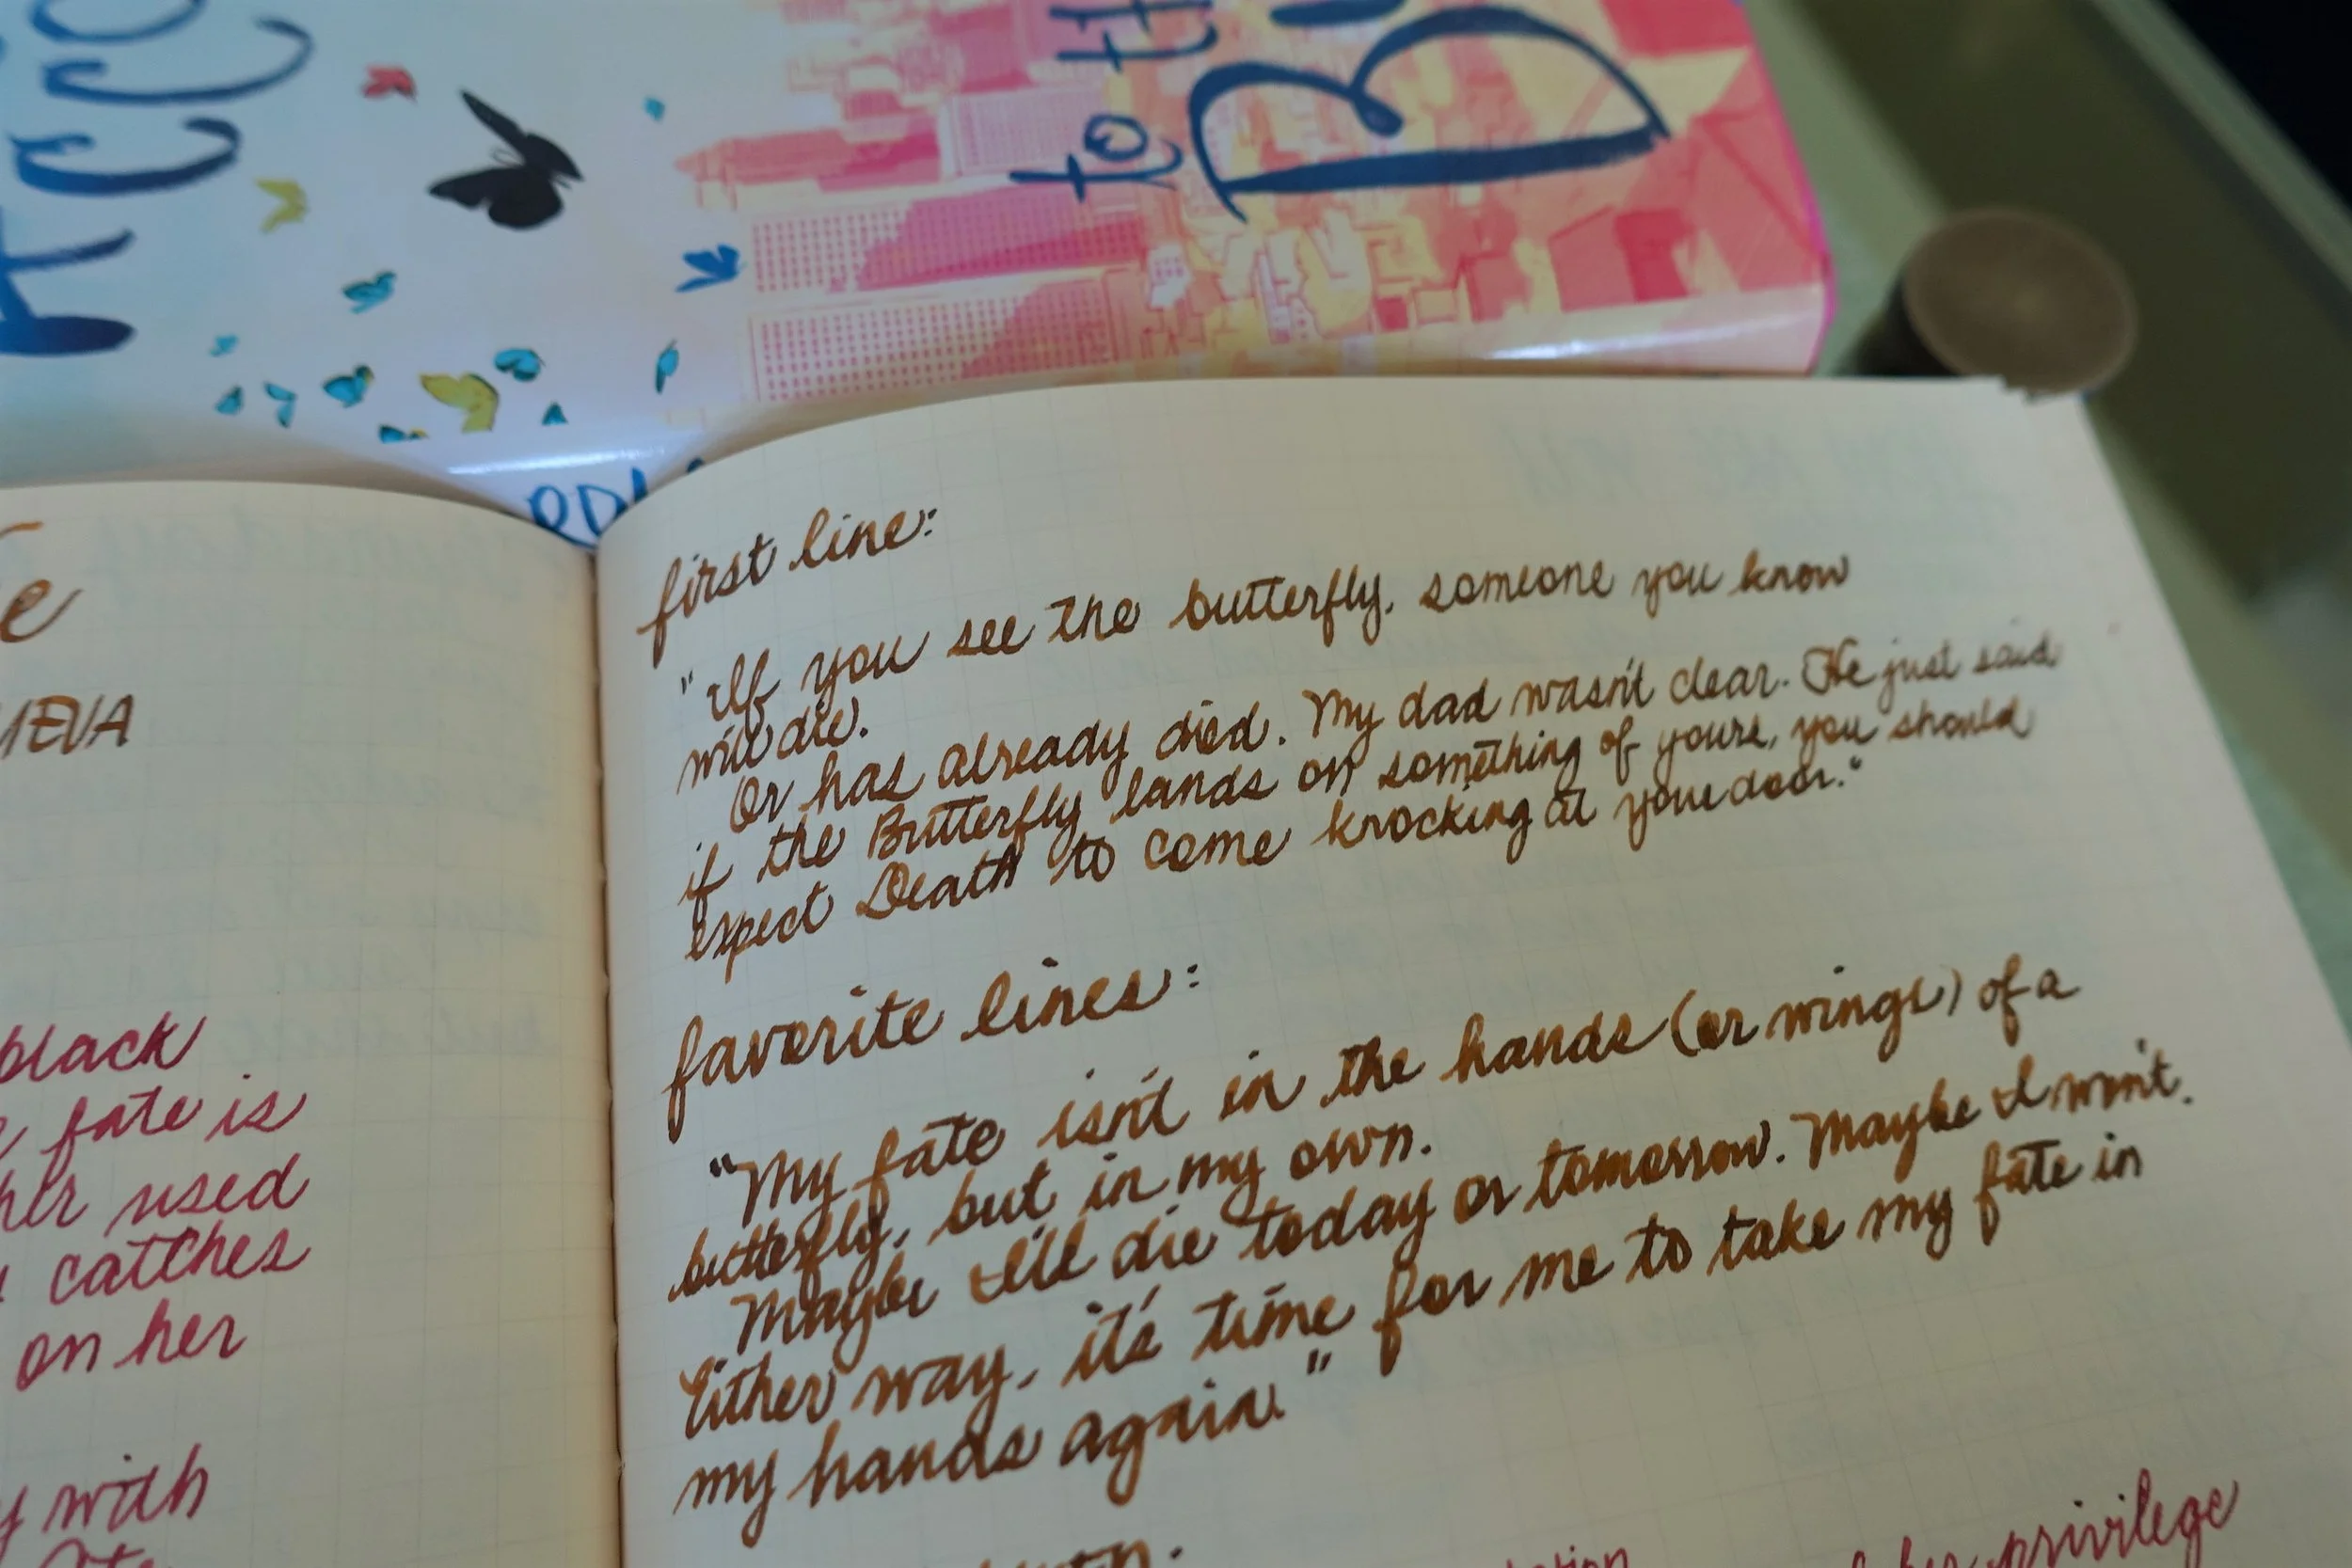 to th
first line:
"If you see the butterfly, someone you know
will die.
Or has already died. My dad wasn't clear. He just said
if the Butterfly lands on something of yours, you should
expect Death to come knocking at your door."
favorite lines:
"My fate isn't in the hands (or wings) of a
butterfly, but in my own.
Maybe I'll die today or tomorrow. Maybe I won't.
Either way, it's time for me to take my fate in
my hands again."
her privilege
black
fate is
her used
catches
on her
with